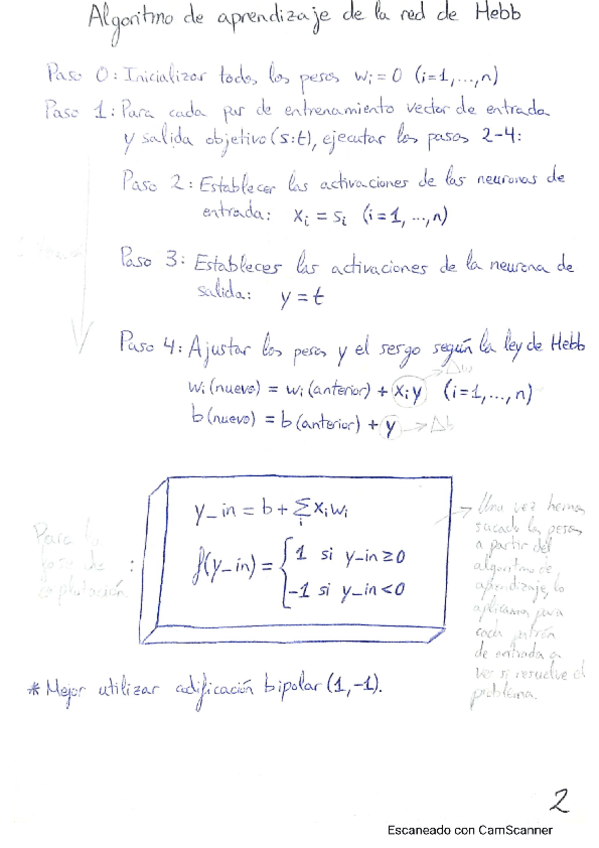 Algoritmo de aprendizaje de la red de Hebb
Paso 0: Inicializar todos los pesos wᵢ = 0 (i=1, ..., n)
Paso 1: Para cada par de entrenamiento vector de entrada
y salida objetivo (s:t), ejecutar los pasos 2-4:
Paso 2: Establecer las activaciones de las neuronas de
entrada: xᵢ = sᵢ (i=1, ..., n)
Paso 3: Establecer las activaciones de la neurona de
salida: y = t
Paso 4: Ajustar los pesos y el sesgo según la ley de Hebb
→ Δw
wᵢ (nuevo) = wᵢ (anterior) + xᵢy (i=1, ..., n)
b (nuevo) = b (anterior) + y → Δb
y_in = b + Σᵢ xᵢwᵢ
f(y_in) = { 1 si y_in ≥ 0
-1 si y_in < 0
Para la
fase de :
explotación
→ Una vez hemos
sacado los pesos
a partir del
algoritmo de
aprendizaje, lo
aplicamos para
cada patrón
de entrada a
ver si resuelve el
problema.
* Mejor utilizar codificación bipolar (1, -1).
2
Escaneado con CamScanner